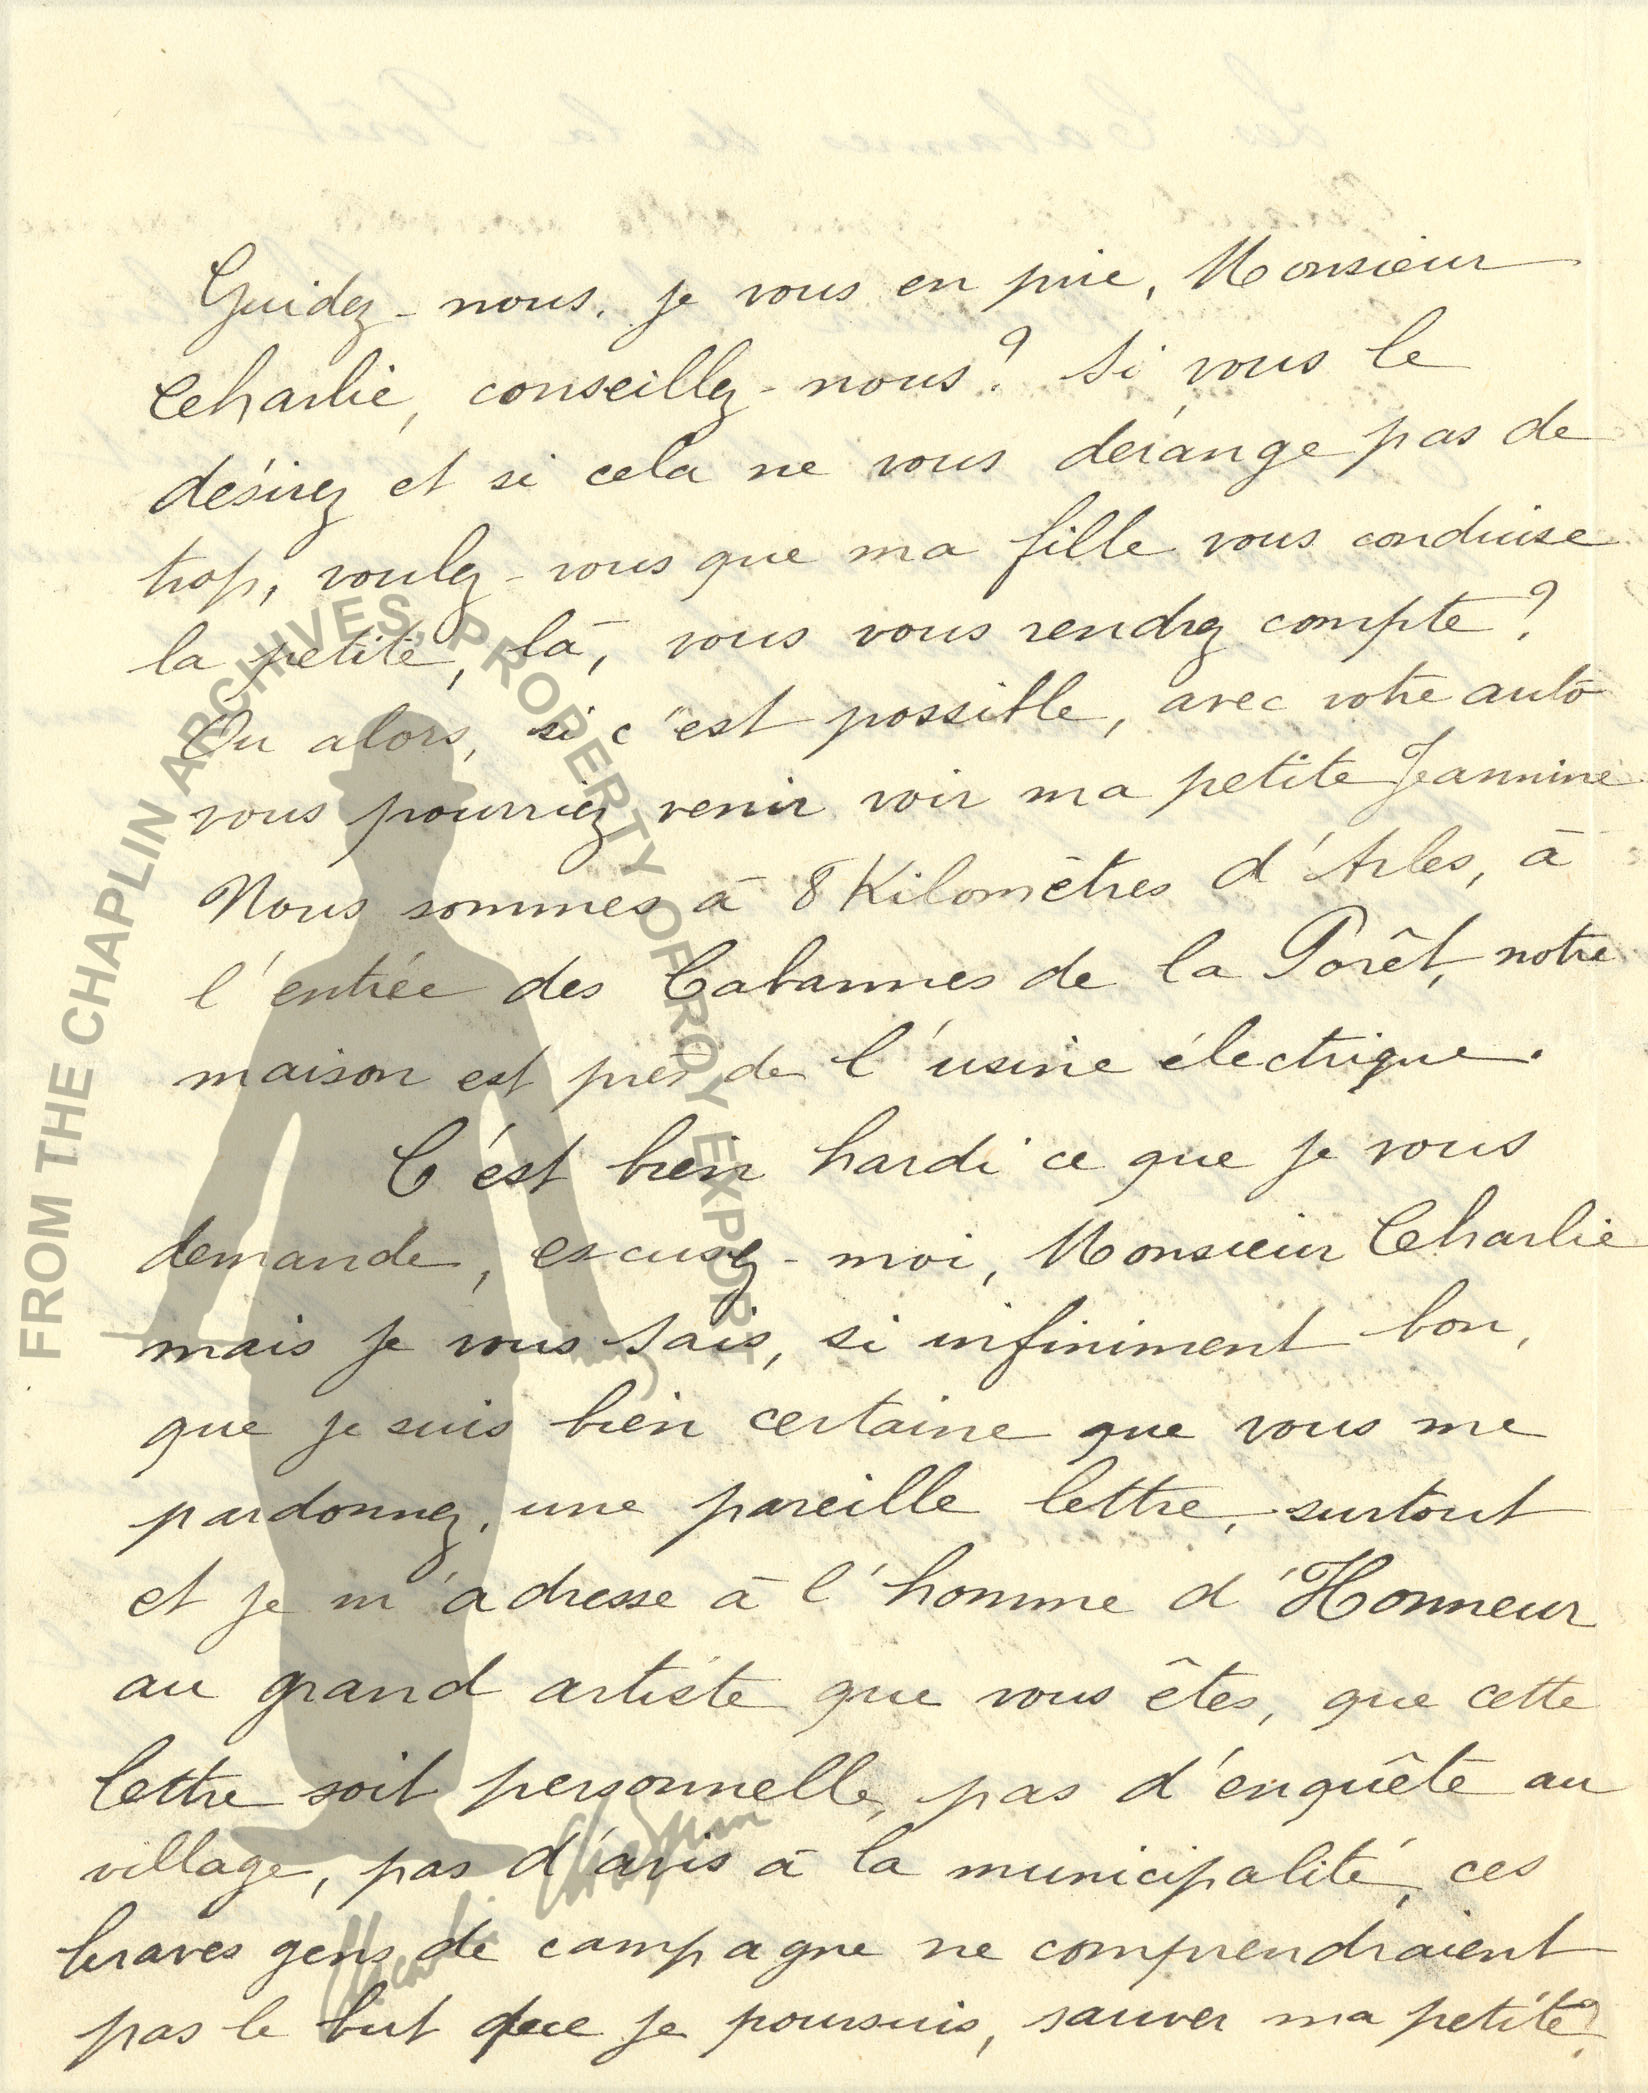 Guidez-nous, je vous en prie, Monsieur
Charlie, conseillez-nous? Si vous le
désirez et si cela ne vous dérange pas de
trop, voulez-vous que ma fille vous conduise
la petite, là, vous vous rendrez compte?
Ou alors, si c'est possible, avec votre auto
vous pourriez venir voir ma petite Jeannine
Nous sommes à 8 Kilomètres d'Arles, à
l'entrée des Cabannes de la Forêt, notre
maison est près de l'usine électrique.
C'est bien hardi ce que je vous
demande, excusez-moi, Monsieur Charlie
mais je vous sais, si infiniment bon,
que je suis bien certaine que vous me
pardonnez, une pareille lettre, surtout
et je m'adresse à l'homme d'Honneur
au grand artiste que vous êtes, que cette
lettre soit personnelle, pas d'enquête au
village, pas d'avis à la municipalité, ces
braves gens de campagne ne comprendraient
pas le but que je poursuis, sauver ma petite?
FROM THE CHAPLIN ARCHIVES, PROPERTY OF ROY EXPORT
Charlie Chaplin